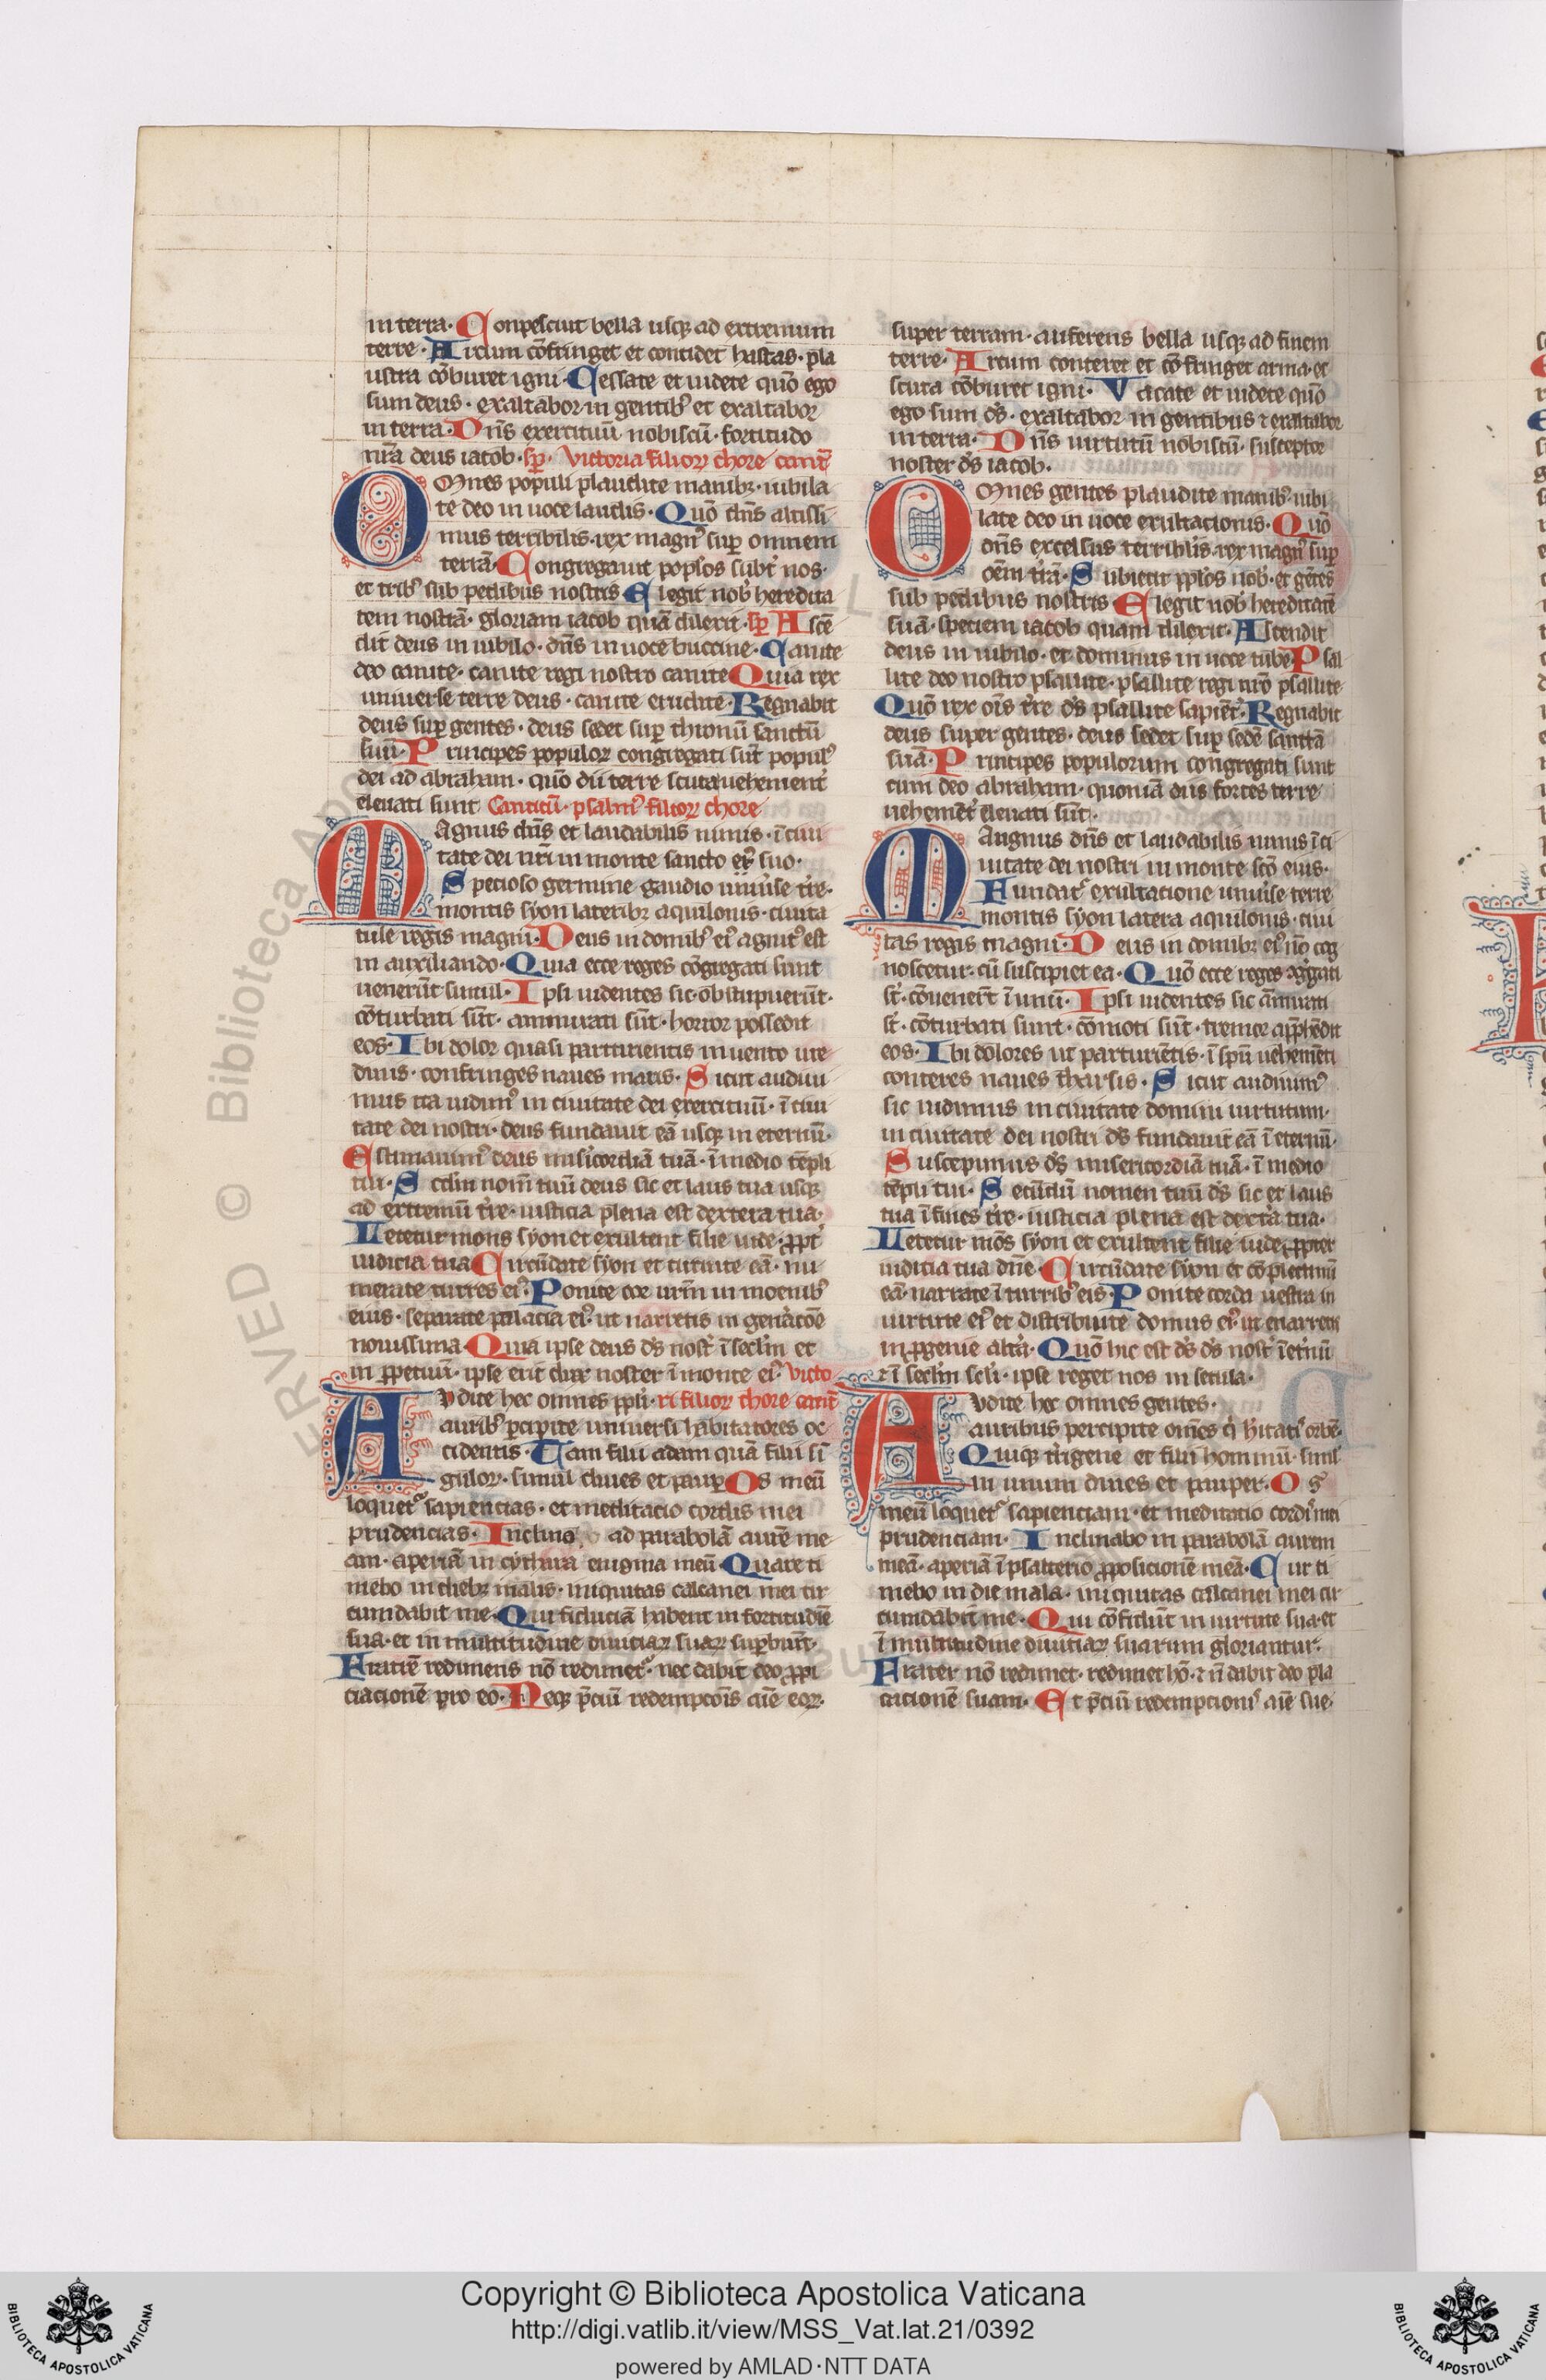 in terra· Conpescuit bella usqꝫ ad extremum
terre· Arcum cōfringet et concidet hastas· pla
ustra cōburet igni· Cessate et uidete qm̄ō ego
sum deus· exaltabor in gentibꝰ et exaltabor
in terra· Dn̄s exercituū nobiscū· fortitudo
nr̄a deus iacob· sp̄· Victoria filioꝝ chore cant̄
OMnes populi plaudite manibꝫ· iubila
te deo in uoce laudis· Quō dn̄s altissi
mus terribilis· rex magnꝰ suꝑ omnem
terrā· Congregauit pop̄los subt̓ nos·
et tribꝰ sub pedibus nostris Elegit nob̓ heredita
tem nostrā· gloriam iacob quā dilexit· sp̄ Ascē
dit deus in iubilo· dn̄s in uoce buccine· Canite
deo canite· canite regi nostro canite Quia rex
uniuerse terre deus· canite erudite· Regnabit
deus suꝑ gentes· deus sedet suꝑ thronū sanctū
suū· Principes populoꝝ congregati sūt populꝰ
dei ad abraham· quō dii terre scuta uehement̓
eleuati sunt Canticū· psalmꝰ filioꝝ chore
MAgnus dn̄s et laudabilis nimis· ī ciui
tate dei nr̄i in monte sancto eiꝰ suo·
Specioso germine gaudio uniu̓se tr̄e·
montis syon lateribꝫ aquilonis· ciuita
tule regis magni· Deus in domibꝰ eiꝰ agnitꝰ est
in auxiliando· Quia ecce reges cōgregati sunt
uenerūt simul· Ipsi uidentes sic obstupuerūt·
cōturbati sūt· ammirati sūt· horror possedit
eos· Ibi dolor quasi parturientis in uento ure
dinis· confringes naues maris· Sicut audiui
mus ita uidimꝰ in ciuitate dei exercituū· ī ciui
tate dei nostri· deus fundauit eā usqꝫ in eternū·
Estimauimꝰ deus mis̓icordiā tuā· ī medio tēpli
tui· Scdm nom̄ tuū deus sic et laus tua usqꝫ
ad extremū tr̄e· iusticia plena est dextera tua·
Letetur mons syon et exultent filie iude· ꝓpt̓
iudicia tua Circūdate syon et circuite eā· nu
merate turres eiꝰ· Ponite cor ur̄m in moenibꝰ
eius· separate palacia eiꝰ· ut narretis in gen̓acōe
nouissima· Quia ipse deus ds̄ nost̓ ī secl̄m et
in ꝑpetuū· ipse erit dux noster ī monte eiꝰ· Victo
AVdite hec omnes ppl̄i· ri filioꝝ chore cant̄
auribꝰ ꝑcipite uniuersi habitatores oc
cidentis· Tam filii adam quā filii si
guloꝝ· simul diues et pauꝑ Os meū
loquet᷑ sapiencias· et meditacio cordis mei
prudencias· Inclino ad parabolā aurē me
am· aperiā in cythara enigma meū· Quare ti
mebo in diebꝫ malis· iniquitas calcanei mei cir
cumdabit me· Qui fiduciā habent in fortitudīe
sua· et in multitudine diuitiaꝝ suaꝝ suꝑbiūt·
Fratrē redimens nō redimet᷑· nec dabit deo ꝓpi
ciacionē pro eo· Neqꝫ p̄ciū redempcōis aīe eoꝝ·
super terram· auferens bella usqꝫ ad finem
terre· Arcum conteret et cōfringet arma· et
scuta cōburet igni· Vacate et uidete quō
ego sum ds̄· exaltabor in gentibus ⁊ exaltabor
in terra· Dn̄s uirtutū nobiscū· susceptor
noster ds̄ iacob·
OMnes gentes plaudite manibꝰ iubi
late deo in uoce exultacionis· Quō
dn̄s excelsus terribilis· rex magnꝰ suꝑ
oēm tr̄ā· Subiecit ppl̄os nob̓· et gētes
sub pedibus nostris Elegit nob̓ hereditatē
suā· speciem iacob quam dilexit· Ascendit
deus in iubilo· et dominus in uoce tube· Psal
lite deo nostro psallite· psallite regi nr̄o psallite·
Quō rex oīs tr̄e ds̄ psallite sapient̓· Regnabit
deus super gentes· deus sedet suꝑ sedē sanctā
suā· Principes populorum congregati sunt
cum deo abraham· quoniā dii fortes terre
uehemēt̓ eleuati sūt·
MAgnus dn̄s et laudabilis nimis ī ci
uitate dei nostri in monte scō eius·
Fundat᷑ exultacione uniu̓se terre
montis syon latera aquilonis· ciui
tas regis magni· Deus in domibꝫ eiꝰ nō cog
noscetur· cū suscipiet ea· Quō ecce reges ꝯg̓gati
st̄· cōuenert̄ ī unū· Ipsi uidentes sic āmirati
st̄· cōturbati sunt· cōmoti sūt· tremor app̄hēdit
eos· Ibi dolores ut parturiētis· ī spū uehemēti
conteres naues tharsis· Sicut audiuimꝰ
sic uidimus in ciuitate domini uirtutum·
in ciuitate dei nostri ds̄ fundauit eā ī eternū·
Suscepimus ds̄ misericordiā tuā· ī medio
tēpli tui· Secūdū nomen tuū ds̄ sic et laus
tua ī fines tr̄e· iusticia plena est dext̓a tua·
Letetur mōs syon et exultent filie iude· ꝓpter
iudicia tua dn̄e· Circūdate syon et cōplectimī
eā· narrate ī turribꝰ eiꝰ· Ponite corda uestra in
uirtute eiꝰ et distribuite domus eiꝰ· ut enarretis
in ꝓgenie alt̓a· Quō hic est ds̄ ds̄ nost̓ ī et̓nū
⁊ ī secl̄m scl̄i· ipse reget nos in secula·
AVdite hec omnes gentes·
auribus percipite om̄es q̓ hitatꝭ orbē·
Quiqꝫ tr̓igene et filii hominū· siml̓
in unum diues et pauper· Os
meū loquet᷑ sapienciam· et meditacio cordꝭ mei
prudenciam· Inclinabo in parabolā aurem
meā· aperiā ī psalterio ꝓposicionē meā· Cur ti
mebo in die mala· iniquitas calcanei mei cir
cumdabit me· Qui cōfidūt in uirtute sua· et
ī multitudine diuitiaꝝ suarum gloriantur·
Frater nō redimet· redimet hō· ⁊ n̄ dabit deo pla
cacionē suam· Et p̄ciū redempcionꝭ aīe sue·
Copyright © Biblioteca Apostolica Vaticana
http://digi.vatlib.it/view/MSS_Vat.lat.21/0392
powered by AMLAD·NTT DATA
BIBLIOTECA APOSTOLICA VATICANA
BIBLIOTECA APOSTOLICA VATICANA